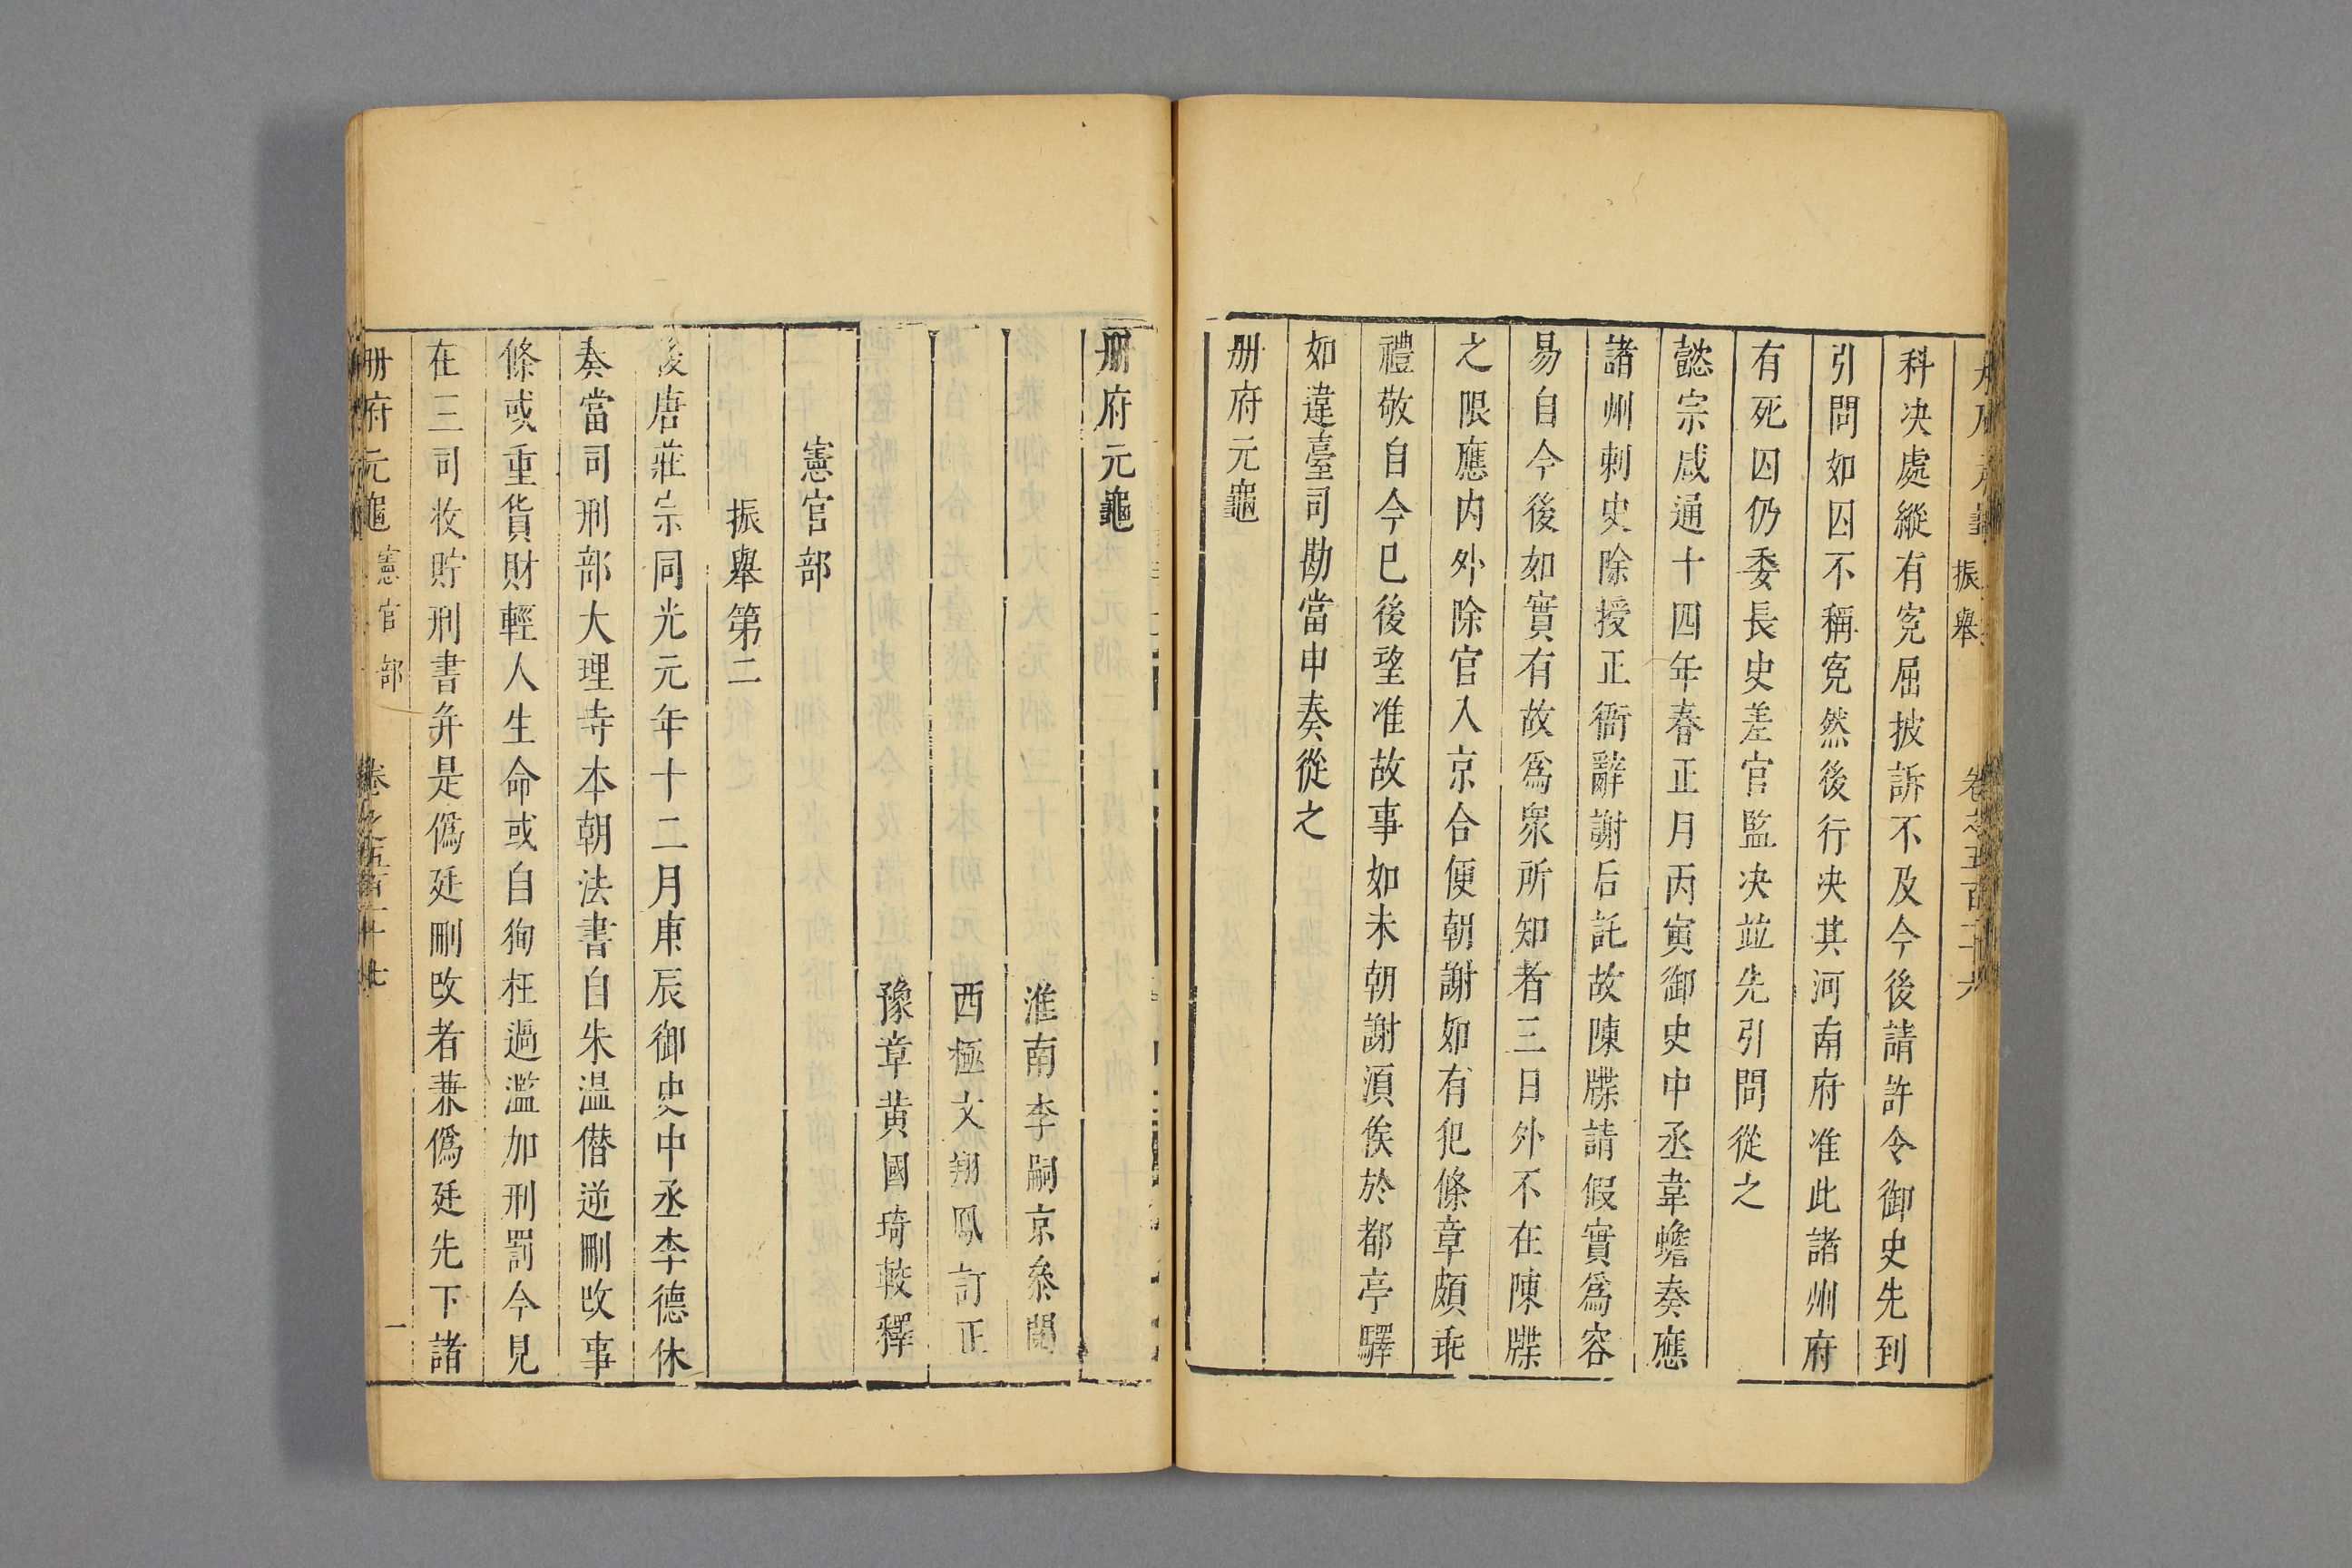 振舉
卷之五百二十六
科决處縱有寃屈披訴不及今後請許令御史先到
引問如囚不稱寃然後行决其河南府准此諸州府
有死囚仍委長史差官監决並先引問從之
懿宗咸通十四年春正月丙寅御史中丞韋蟾奏應
諸州刺史除授正衙辭謝后託故陳牒請假實為容
易自今後如實有故爲衆所知者三日外不在陳牒
之限應内外除官入京合便朝謝如有犯條章頗乖
禮敬自今巳後望准故事如未朝謝湏俟於都亭驛
如違臺司勘當申奏從之
册府元龜
册府元龜
淮南李嗣京叅閱
西極文翔鳳訂正
豫章黄國琦較釋
憲官部
振舉第二
後唐莊宗同光元年十二月庚辰御史中丞李德休
奏當司刑部大理寺本朝法書自朱温僣逆刪改事
條或重貨財輕人生命或自狥枉過濫加刑罰今見
在三司收貯刑書并是僞廷刪改者兼僞廷先下諸
册府元龜
憲官部
卷之五百二十七
一